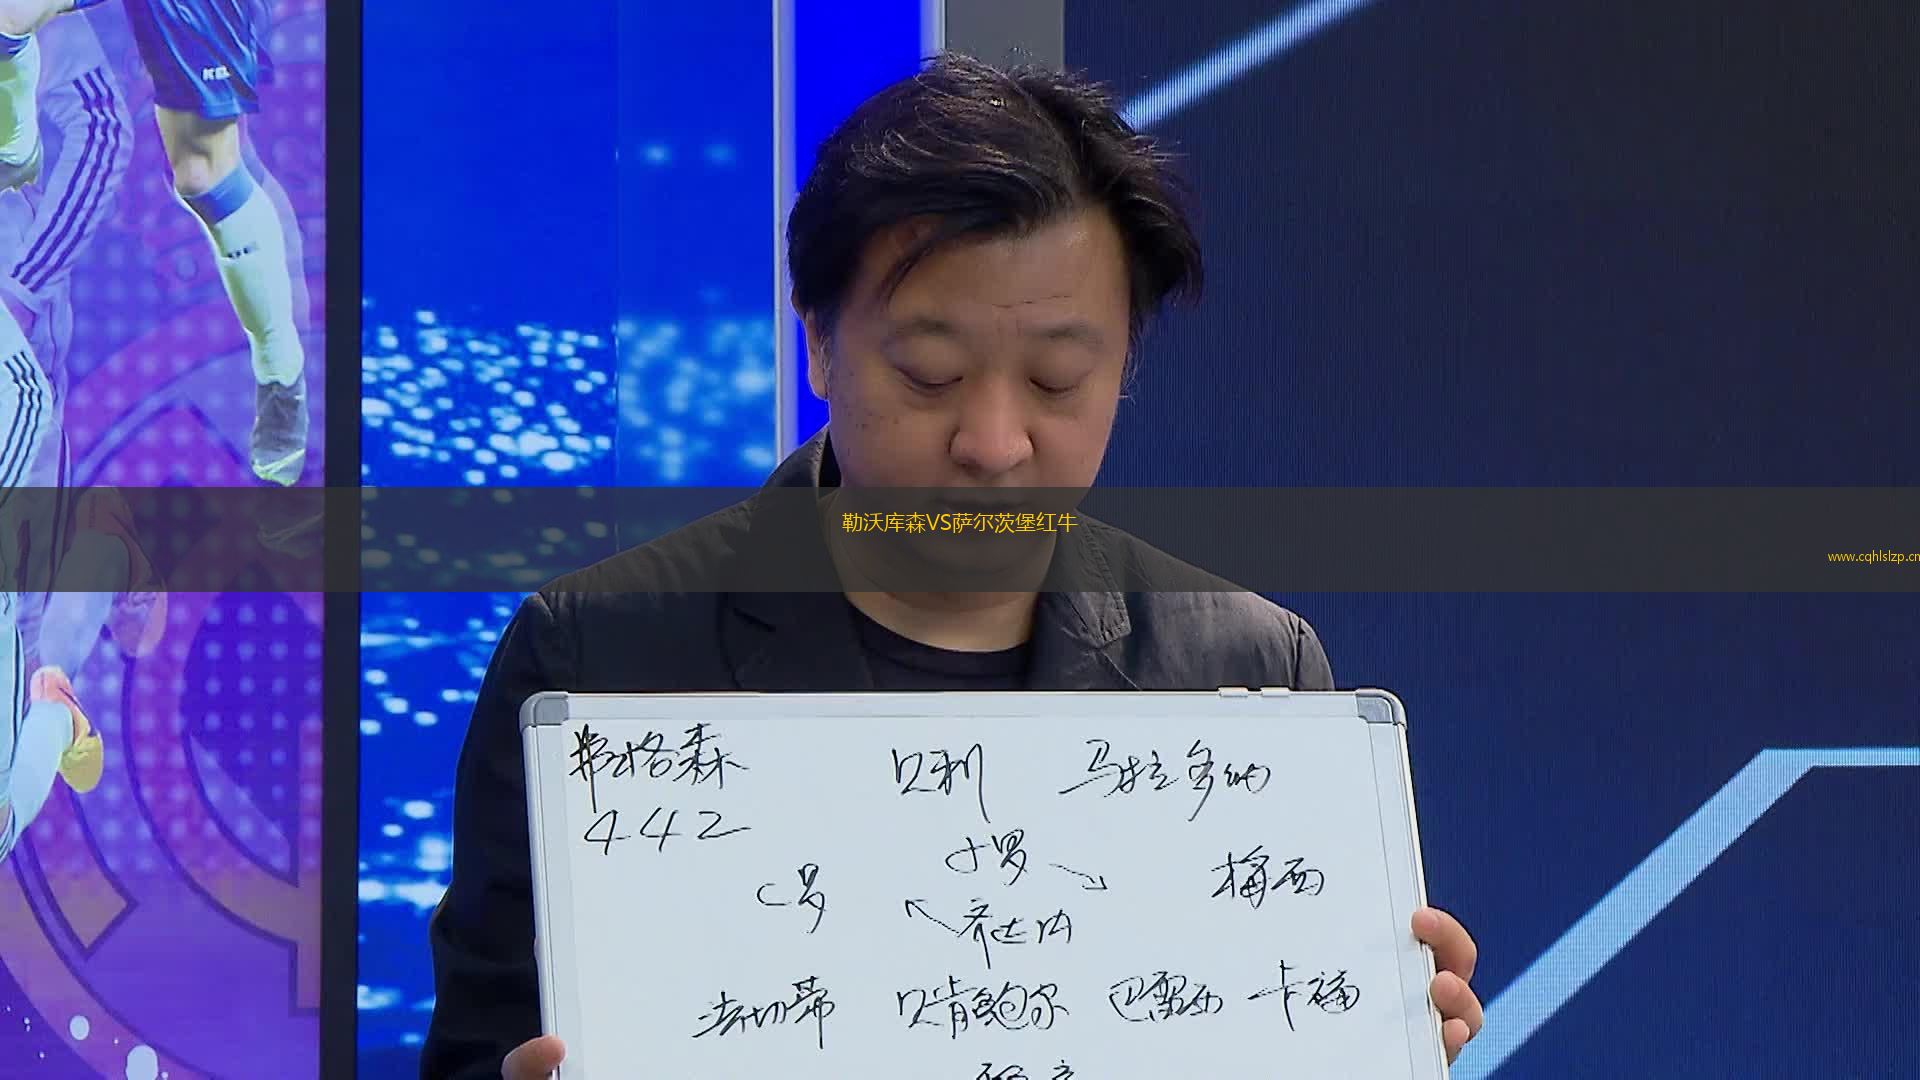 KEL
勒沃库森VS萨尔茨堡红牛
www.cqhlslzp.cn
弗格森 贝利 马拉多纳
442
小罗
C罗 梅西
齐达内
法切蒂 贝肯鲍尔 巴雷西 卡福